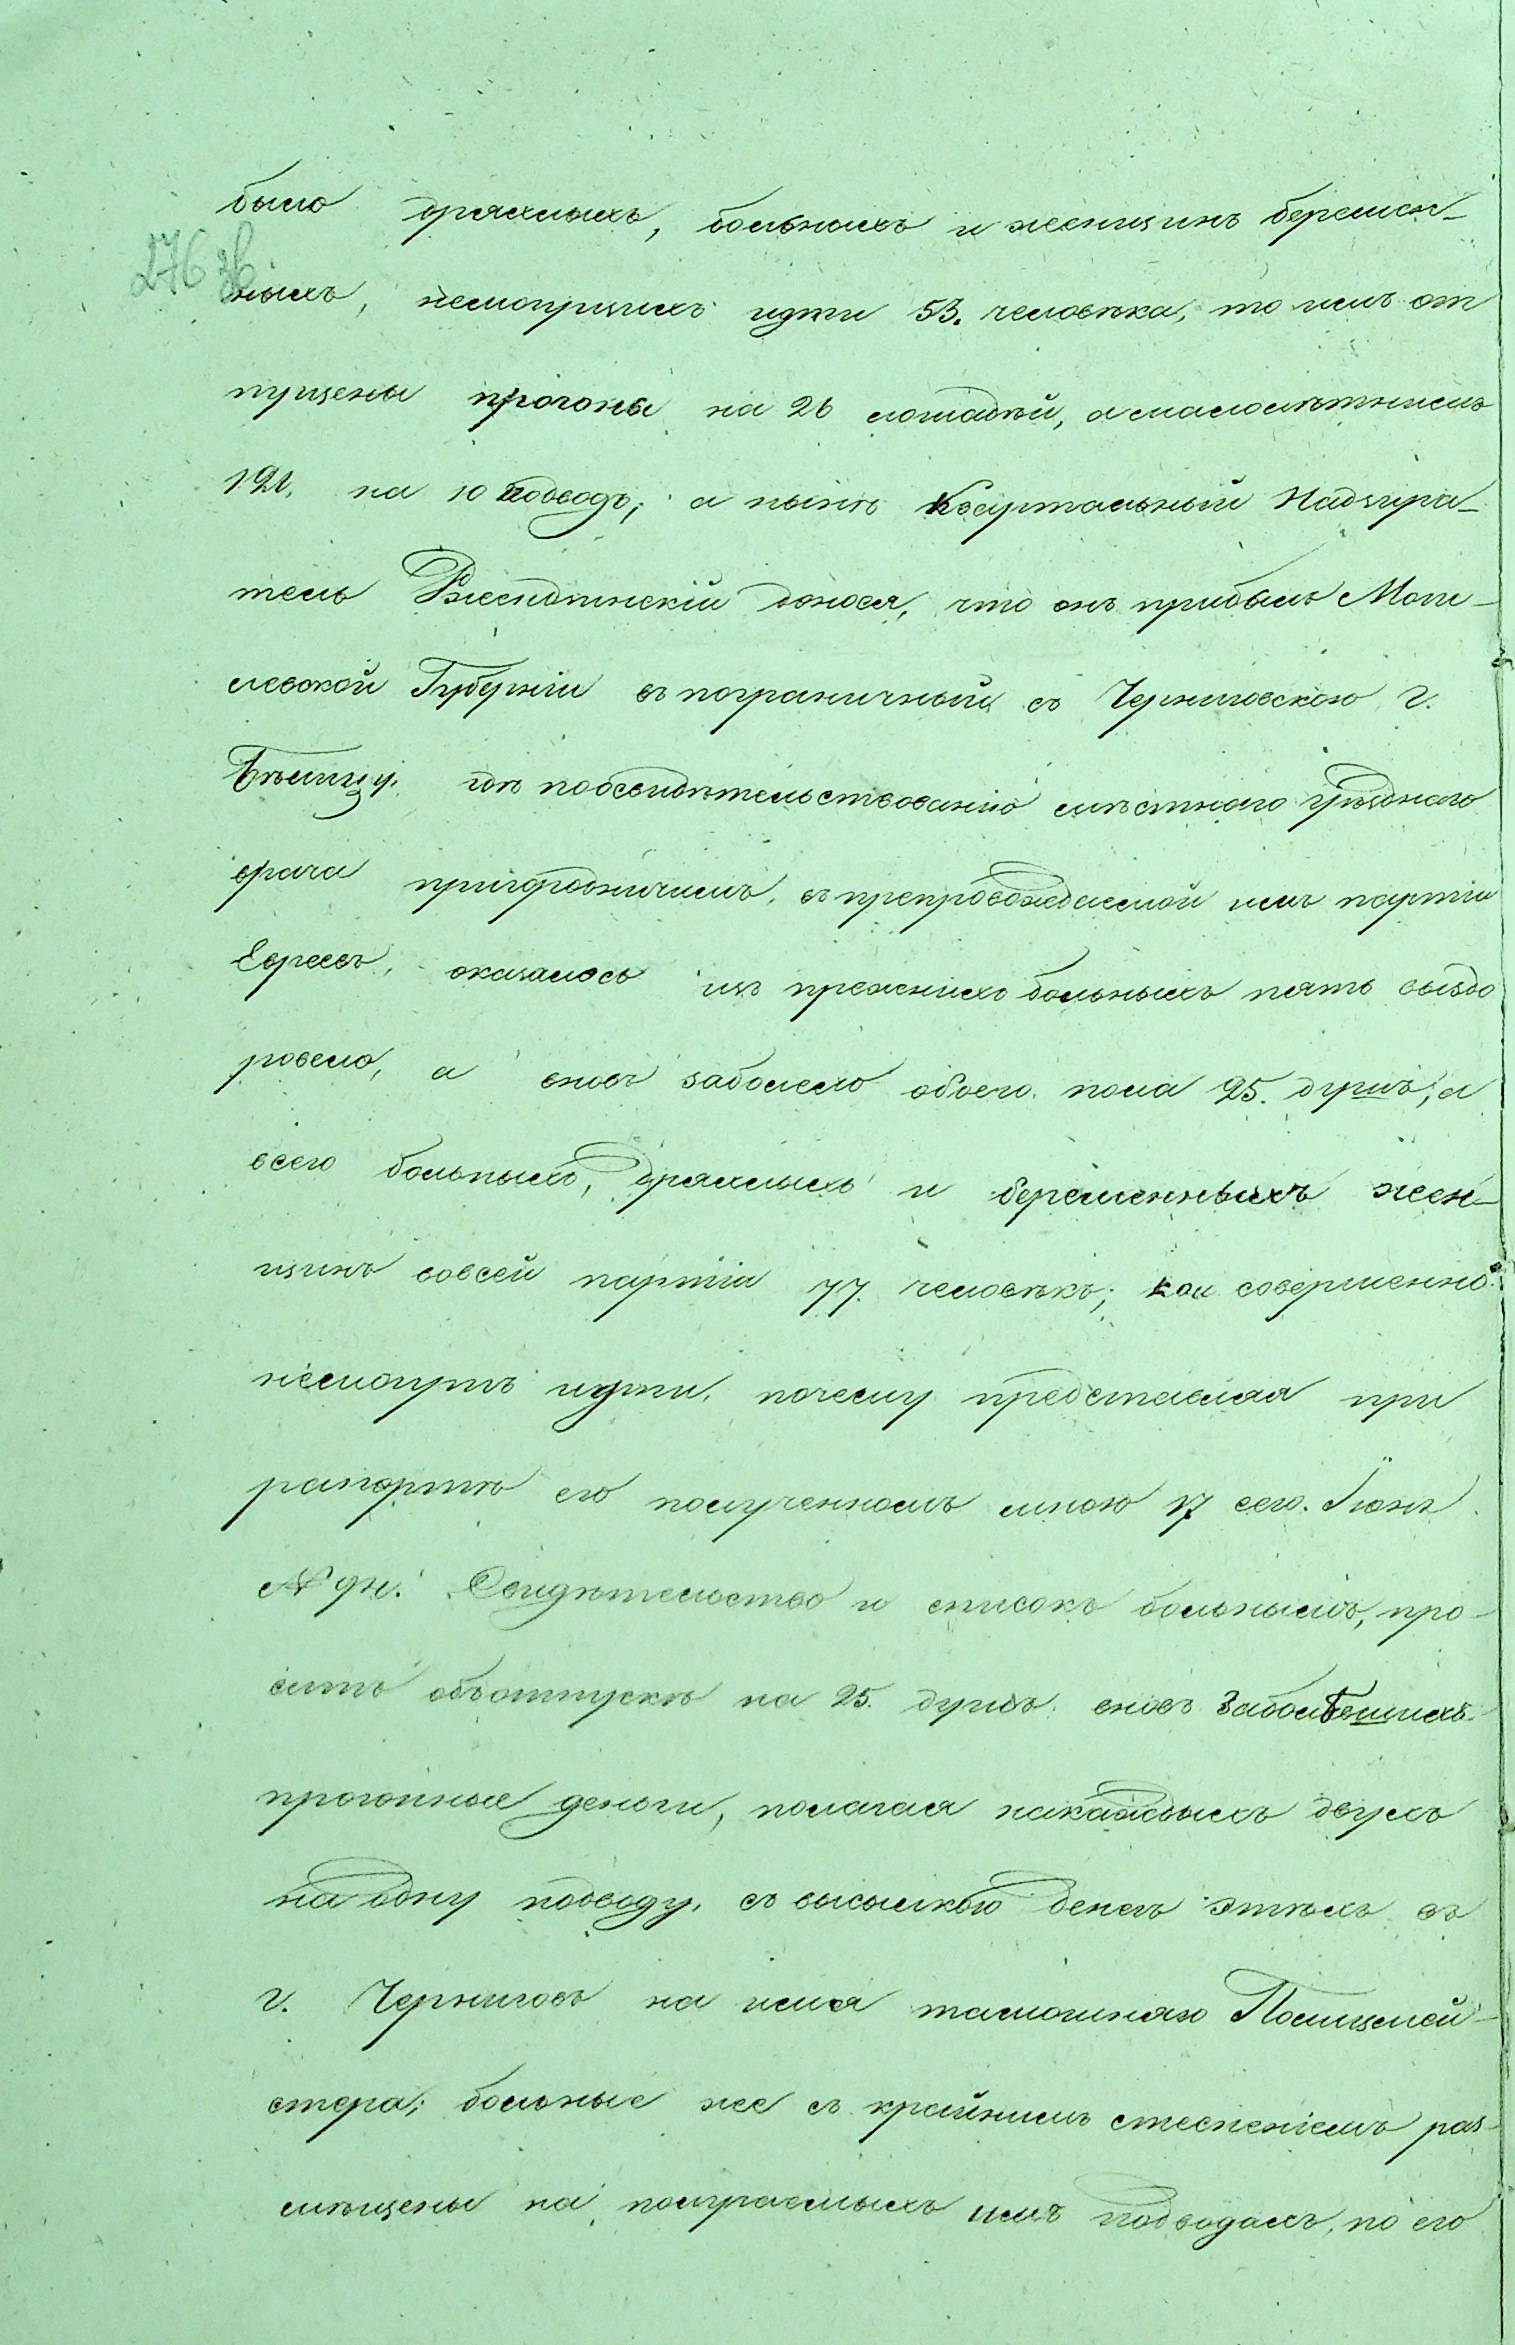 было дряхлыхъ, больныхъ и женщинъ беремен-
276 об
ныхъ, немогущихъ идти 53. человѣка, то имъ от
пущены прогоны на 26 лошадѣй, а малолѣтнимъ
121. на 10 подводъ; а нынѣ Квартальный Надзира-
тель донося, что онъ прибылъ Моги-
левской Губерніи въ пограничный съ Черниговскою г.
Бѣлицу, гдѣ пообсвидѣтельствованію мѣстнаго уѣзднаго
врача пригородничемъ, въ препровождаемой имъ партіи
Евреевъ, оказалось изъ прежнихъ больныхъ пять выздо
ровело, а вновь заболело обоего пола 25. душъ, а
всего больныхъ, дряхлыхъ и беременныхъ жен-
щинъ вовсей партіи 77. человѣкъ; кои совершенно
немогутъ идти, почему представляя при
рапортѣ его полученномъ мною 17 сего Іюня
№ 94. Свидѣтельство и списокъ больнымъ, про-
ситъ объотпускѣ на 25. душъ вновь заболѣвшихъ
прогонные деньги, полагая накаждыхъ двухъ
на одну подводу, съ высылкою денегъ этѣхъ въ
г. Черниговъ на имя тамошняго Полицмей-
стера; больные же съ крайнимъ стесненіемъ раз-
мѣщены на получаемыхъ имъ подводахъ, по его